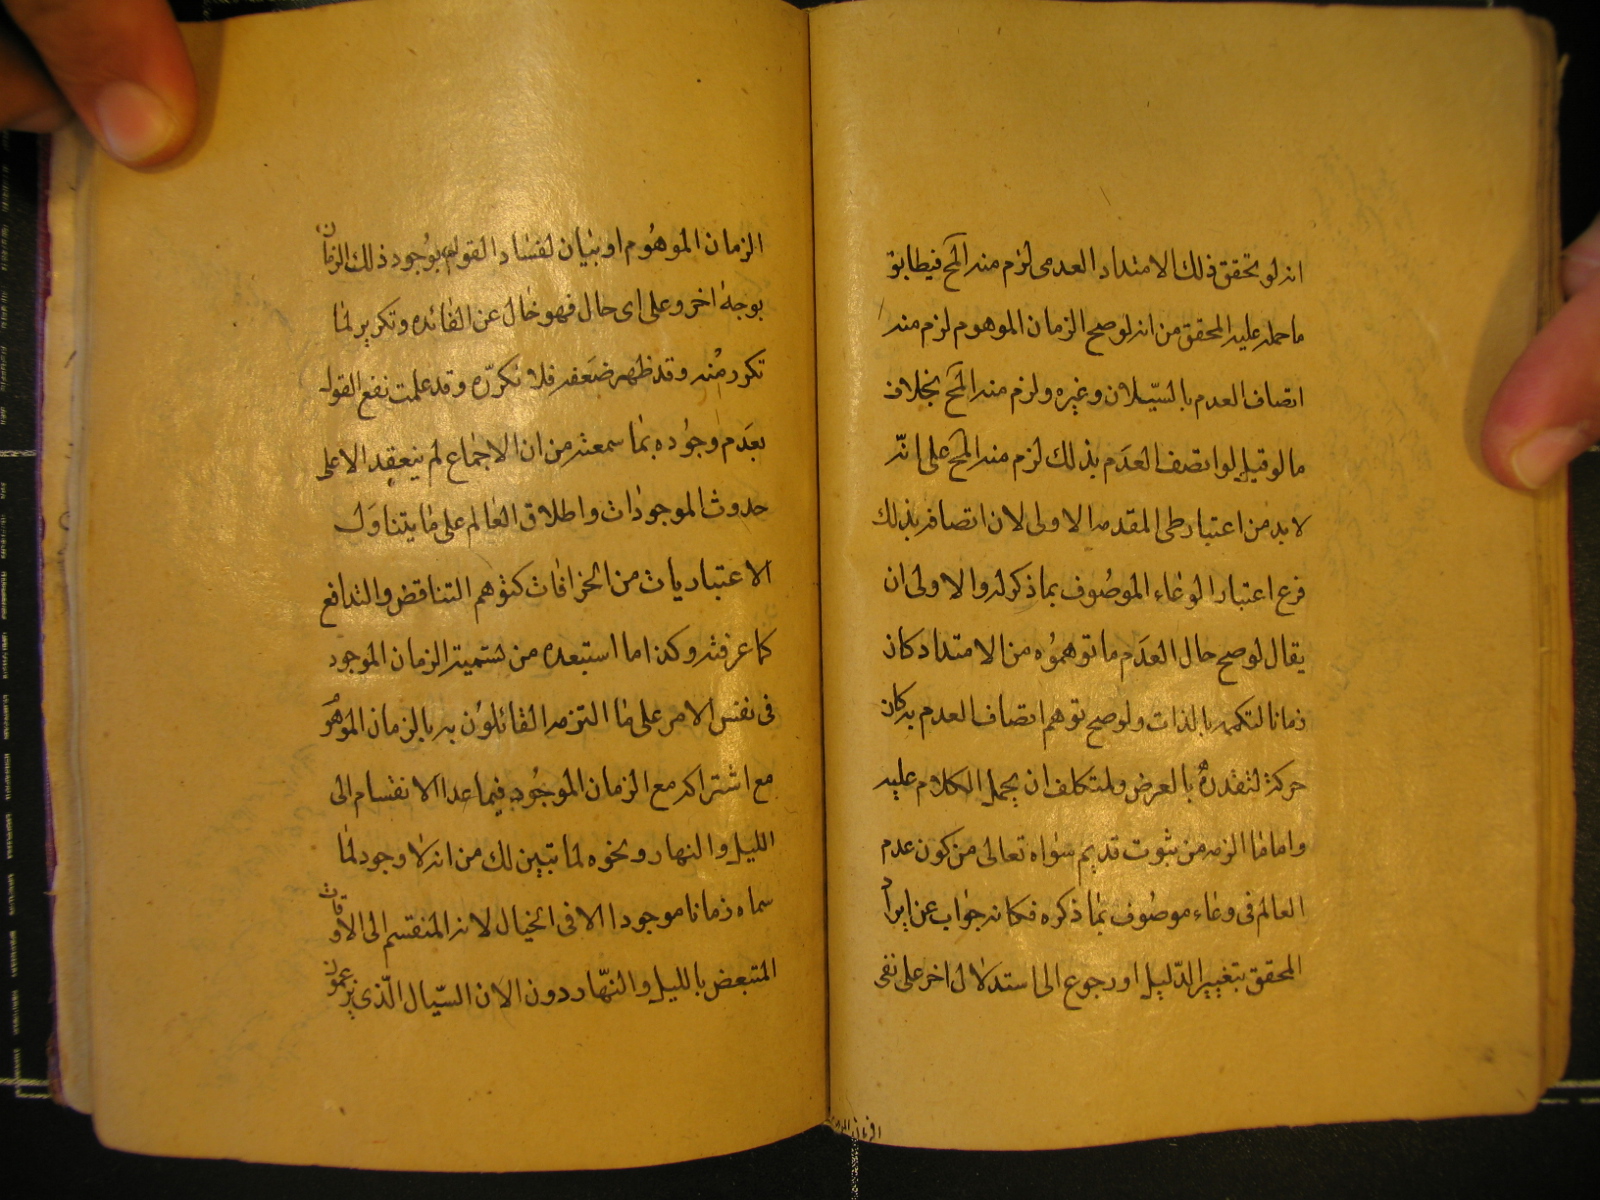 انه لو تحقق ذلك الامتداد العدمى لزم منه المح فيطابق
ما حمله عليه المحقق من انه لو صح الزمان الموهوم لزم منه
اتصاف العدم بالسيّلان وغيره ولزم منه المح بخلاف
ما لو قيل لو اتصف العدم بذلك لزم منه المح على انّه
لا بد من اعتبار طى المقدمه الاولى لان اتصافه بذلك
فرع اعتبار الوعاء الموصوف بما ذكر له والاولى ان
يقال لو صح حال العدم ما توهموه من الامتداد كان
زمانا لتكممه بالذات ولو صح توهم اتصاف العدم به كان
حركة لتقدره بالعرض ولمتكلف ان يحمل الكلام عليه
واما ما الزمه من ثبوت قديم سواه تعالى من كون عدم
العالم فى وعاء موصوف بما ذكره فكانه جواب عن ايراد
المحقق بتغيير الدّليل او رجوع الى استدلال اخر على نفى
الزمان الموهوم او بيان لفساد القول بوجود ذلك الزمان
بوجه اخر وعلى اى حال فهو خال عن الفائده وتكرير لما
تكرر منه وقد ظهر ضعفه فلا نكرّره وقد علمت نفع القول
بعدم وجوده بما سمعته من ان الاجماع لم ينعقد الا على
حدوث الموجودات واطلاق العالم على ما يتناول
الاعتباريات من الخرافات كتوهم التناقض والتدافع
كما عرفته وكذا ما استبعده من تسمية الزمان الموجود
فى نفس الامر على ما التزمه القائلون به بالزمان الموهوم
مع اشتراكه مع الزمان الموجود فيما عدا الانقسام الى
الليل والنهار ونحوه لما تبين لك من انه لا وجود لما
سماه زمانا موجودا الا فى الخيال لانه المنقسم الى الاوقات
المتبعض بالليل والنّهار دون الان السيّال الّذى يزعمون